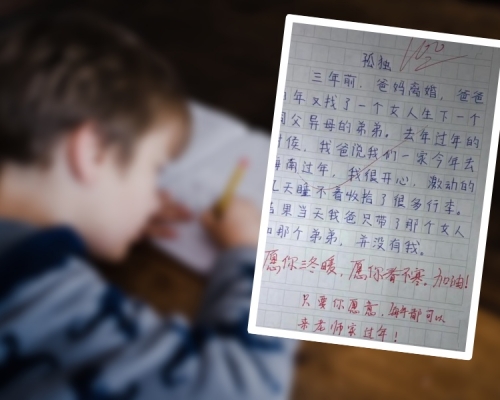 100
孤独
三年前,爸妈离婚,爸爸
年又找了一个女人生下一个
同父异母的弟弟。去年过年的
时候,我爸说我们一家今年去
海南过年,我很开心,激动的
几天睡不着收拾了很多行李。
结果当天我爸只带了那个女人
和那个弟弟,并没有我。
愿你三冬暖,愿你春不寒。加油!
只要你愿意,每年都可以
来老师家过年!